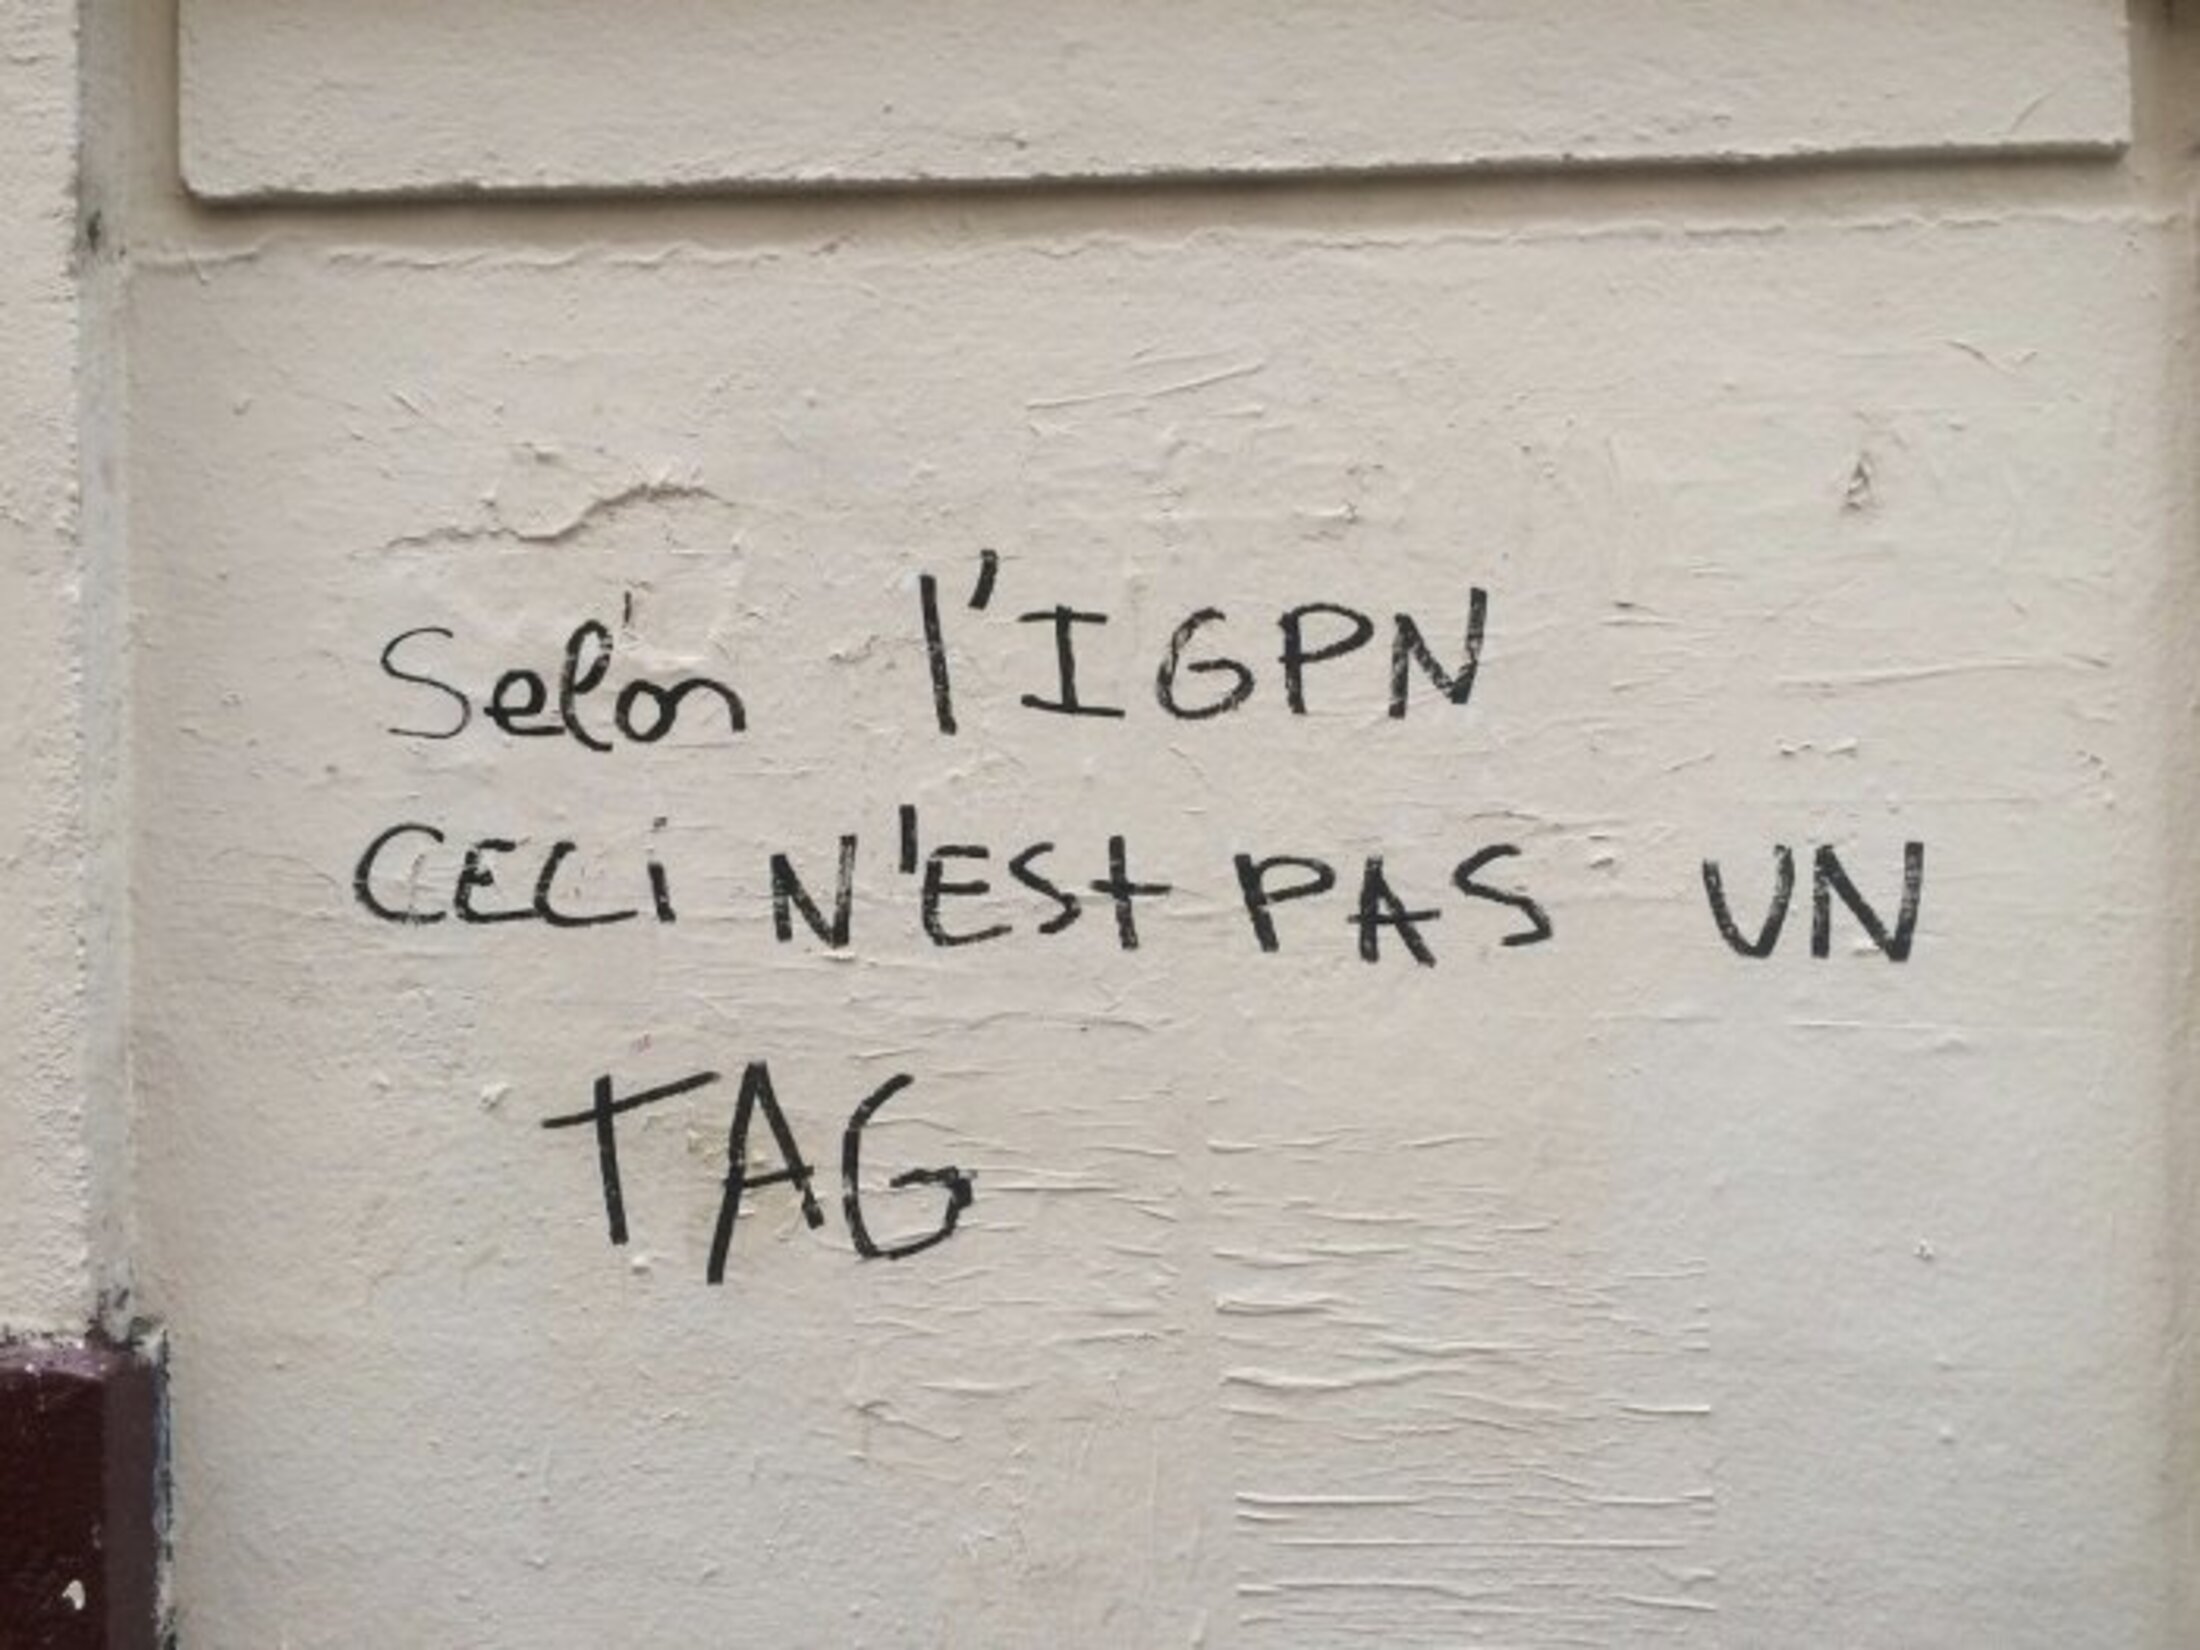 Selon l'IGPN
CECi N'ESt PAS UN
TAG